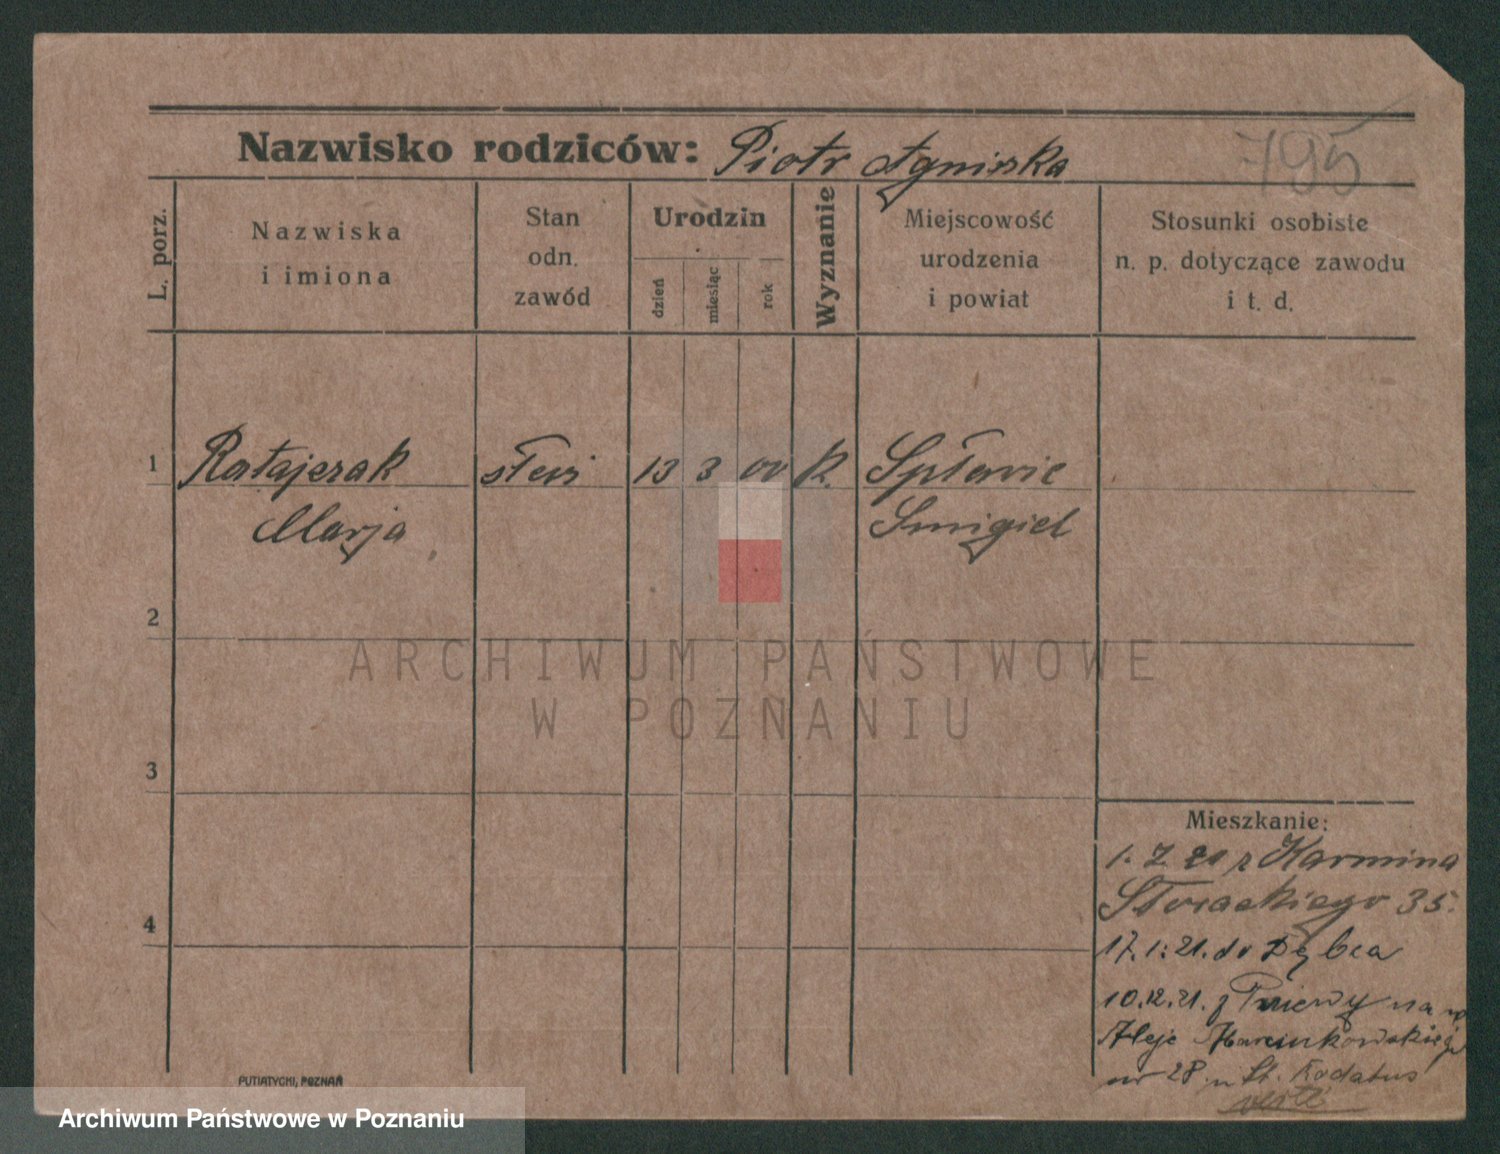 Nazwisko rodziców: Piotr Agniska
795
L. porz.
Nazwiska
i imiona
Stan
odn.
zawód
Urodzin
dzień
miesiąc
rok
Wyznanie
Miejscowość
urodzenia
i powiat
Stosunki osobiste
n. p. dotyczące zawodu
i t. d.
1 Ratajczak 13 3 00 K. Spławie
Marja Smigiel
2
ARCHIWUM PAŃSTWOWE
W POZNANIU
3
Mieszkanie:
1. 7. 21 z Karmina
Słowackiego 35.
4
17. 1. 21. do Dębca
10.12.21. z Pniewy na
Aleje Marcinkowskiego
nr 28 u St.
PUTIATYCKI, POZNAŃ
Archiwum Państwowe w Poznaniu